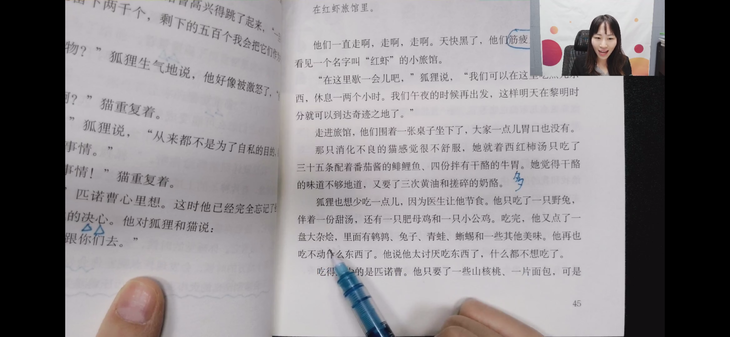 高兴得跳了起来，“
下两千个，剩下的五百个我会把它们
物？”狐狸生气地说，他好像被激怒了，“
？”猫重复着。
”狐狸说，“从来都不是为了自私的目
事情。”
事情！”猫重复着。
匹诺曹心里想。这时他已经完全忘记了
的决心。他对狐狸和猫说：
跟你们去。”
在红虾旅馆里。
他们一直走啊，走啊，走啊。天快黑了，他们筋疲
看见一个名字叫“红虾”的小旅馆。
“在这里歇一会儿吧，”狐狸说，“我们可以在这里
西，休息一两个小时。我们午夜的时候再出发，这样明天在黎明时
分就可以到达奇迹之地了。”
走进旅馆，他们围着一张桌子坐下了，大家一点儿胃口也没有。
那只消化不良的猫感觉很不舒服，她就着西红柿汤只吃了
三十五条配着番茄酱的鲱鲤鱼、四份拌有干酪的牛胃。她觉得干酪
的味道不够地道，又要了三次黄油和搓碎的奶酪。多
狐狸也想少吃一点儿，因为医生让他节食。他只吃了一只野兔，
伴着一份甜汤，还有一只肥母鸡和一只小公鸡。吃完，他又点了一
盘大杂烩，里面有鹌鹑、兔子、青蛙、蜥蜴和一些其他美味。他再也
吃不动什么东西了。他说他太讨厌吃东西了，什么都不想吃了。
吃得的是匹诺曹。他只要了一些山核桃、一片面包，可是
45